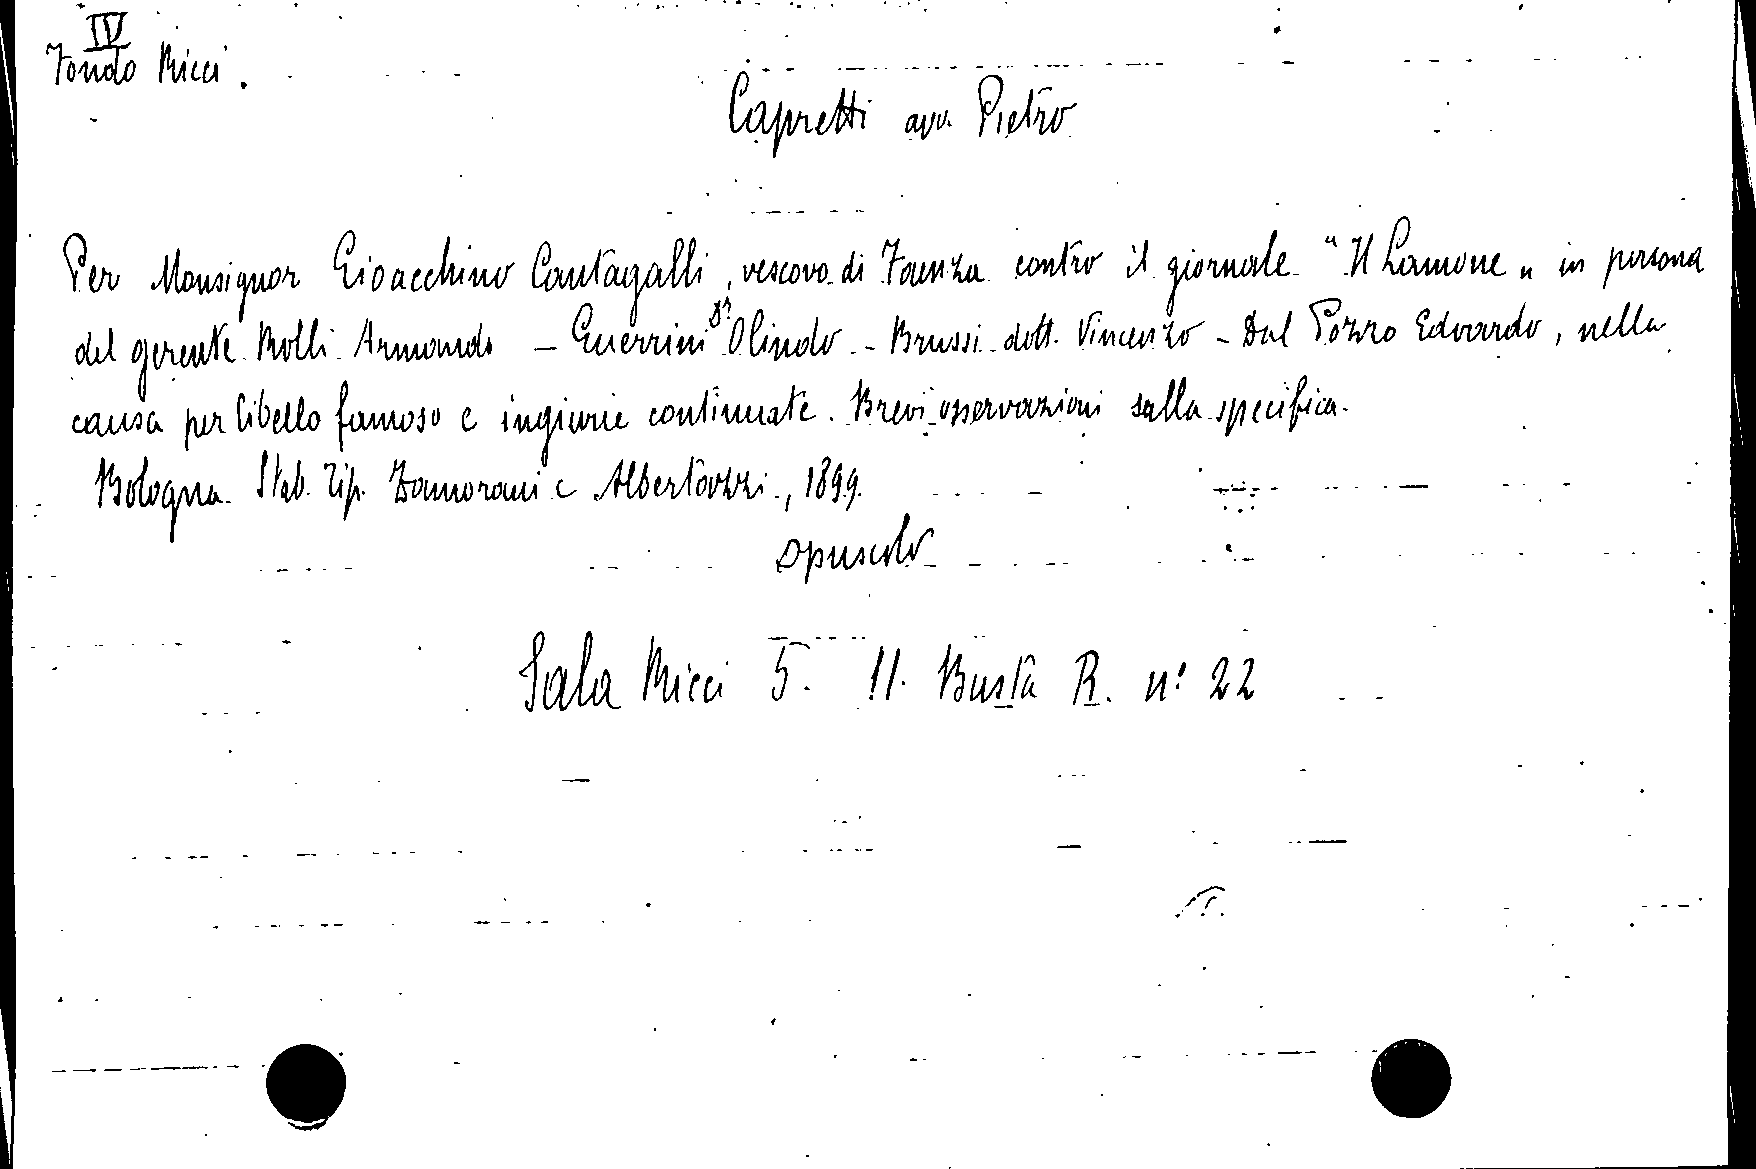 IV
Fondo Ricci.
Capretti avv. Pietro
Per Monsignor Gioacchino Cantagalli, vescovo di Faenza contro il giornale "Il Lamone" in persona
del gerente Rolli Armando - Guerrini Dr Olindo - Brussi dott. Vincenzo - Dal Pozzo Edoardo, nella
causa per libello famoso e ingiurie continuate. Brevi osservazioni sulla specifica.
Bologna Stab. Tip. Zamorani e Albertazzi, 1899.
opuscolo
Sala Ricci 5. 11. Busta R. n: 22